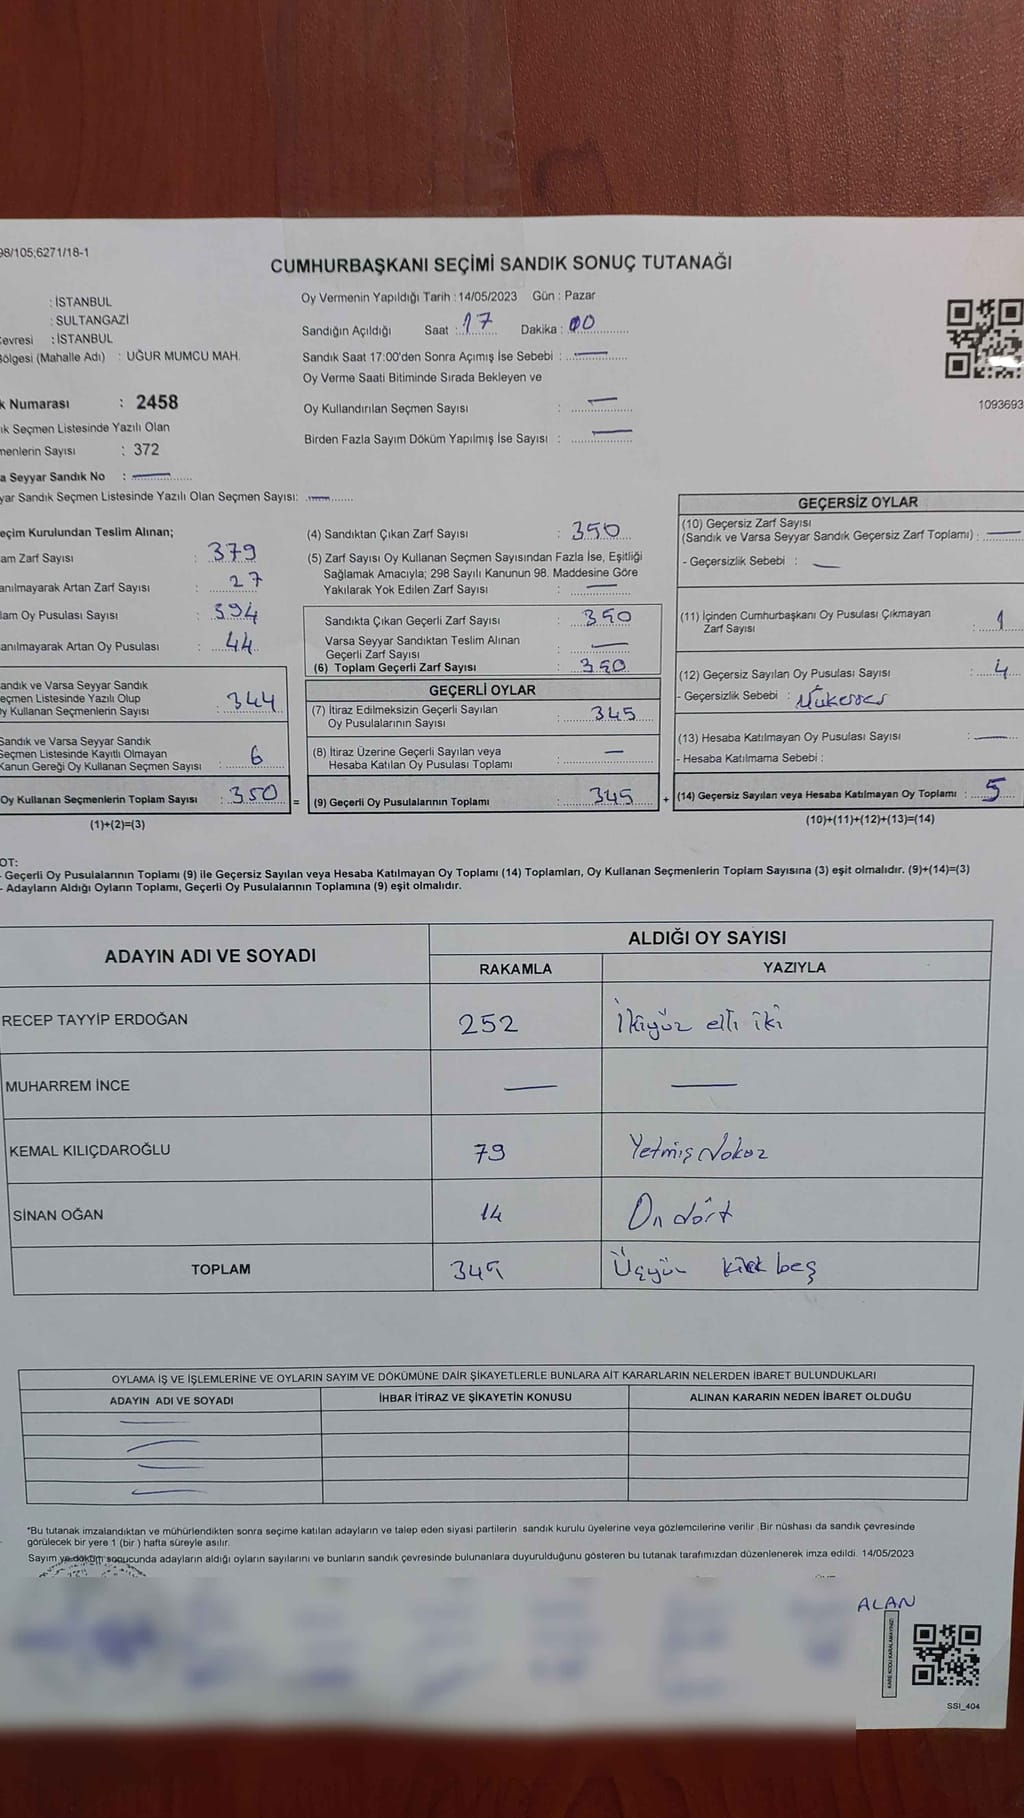 98/105;6271/18-1
CUMHURBAŞKANI SEÇİMİ SANDIK SONUÇ TUTANAĞI
: İSTANBUL
: SULTANGAZİ
Çevresi : İSTANBUL
Bölgesi (Mahalle Adı) : UĞUR MUMCU MAH.
k Numarası : 2458
ık Seçmen Listesinde Yazılı Olan
menlerin Sayısı : 372
a Seyyar Sandık No : —
yar Sandık Seçmen Listesinde Yazılı Olan Seçmen Sayısı: —
Oy Vermenin Yapıldığı Tarih : 14/05/2023 Gün : Pazar
Sandığın Açıldığı Saat : 17 Dakika : 00
Sandık Saat 17:00'den Sonra Açımış İse Sebebi : —
Oy Verme Saati Bitiminde Sırada Bekleyen ve
Oy Kullandırılan Seçmen Sayısı : —
Birden Fazla Sayım Döküm Yapılmış İse Sayısı : —
1093693
eçim Kurulundan Teslim Alınan;
am Zarf Sayısı : 379
anılmayarak Artan Zarf Sayısı : 27
lam Oy Pusulası Sayısı : 394
anılmayarak Artan Oy Pusulası : 44
andık ve Varsa Seyyar Sandık
eçmen Listesinde Yazılı Olup
Oy Kullanan Seçmenlerin Sayısı : 344
Sandık ve Varsa Seyyar Sandık
Seçmen Listesinde Kayıtlı Olmayan
Kanun Gereği Oy Kullanan Seçmen Sayısı : 6
Oy Kullanan Seçmenlerin Toplam Sayısı : 350 =
(1)+(2)=(3)
(4) Sandıktan Çıkan Zarf Sayısı : 350
(5) Zarf Sayısı Oy Kullanan Seçmen Sayısından Fazla İse, Eşitliği
Sağlamak Amacıyla; 298 Sayılı Kanunun 98. Maddesine Göre
Yakılarak Yok Edilen Zarf Sayısı : —
Sandıkta Çıkan Geçerli Zarf Sayısı : 350
Varsa Seyyar Sandıktan Teslim Alınan
Geçerli Zarf Sayısı : —
(6) Toplam Geçerli Zarf Sayısı : 350
GEÇERLİ OYLAR
(7) İtiraz Edilmeksizin Geçerli Sayılan
Oy Pusulalarının Sayısı : 345
(8) İtiraz Üzerine Geçerli Sayılan veya
Hesaba Katılan Oy Pusulası Toplamı : —
(9) Geçerli Oy Pusulalarının Toplamı : 345 +
GEÇERSİZ OYLAR
(10) Geçersiz Zarf Sayısı
(Sandık ve Varsa Seyyar Sandık Geçersiz Zarf Toplamı) : —
- Geçersizlik Sebebi : —
(11) İçinden Cumhurbaşkanı Oy Pusulası Çıkmayan
Zarf Sayısı : 1
(12) Geçersiz Sayılan Oy Pusulası Sayısı : 4
- Geçersizlik Sebebi : Mükerrer
(13) Hesaba Katılmayan Oy Pusulası Sayısı : —
- Hesaba Katılmama Sebebi :
(14) Geçersiz Sayılan veya Hesaba Katılmayan Oy Toplamı : 5
(10)+(11)+(12)+(13)=(14)
OT:
- Geçerli Oy Pusulalarının Toplamı (9) ile Geçersiz Sayılan veya Hesaba Katılmayan Oy Toplamı (14) Toplamları, Oy Kullanan Seçmenlerin Toplam Sayısına (3) eşit olmalıdır. (9)+(14)=(3)
- Adayların Aldığı Oyların Toplamı, Geçerli Oy Pusulalarının Toplamına (9) eşit olmalıdır.
ADAYIN ADI VE SOYADI
ALDIĞI OY SAYISI
RAKAMLA YAZIYLA
RECEP TAYYİP ERDOĞAN 252 İkiyüz elli iki
MUHARREM İNCE — —
KEMAL KILIÇDAROĞLU 79 Yetmiş dokuz
SİNAN OĞAN 14 On dört
TOPLAM 345 Üçyüz kırk beş
OYLAMA İŞ VE İŞLEMLERİNE VE OYLARIN SAYIM VE DÖKÜMÜNE DAİR ŞİKAYETLERLE BUNLARA AİT KARARLARIN NELERDEN İBARET BULUNDUKLARI
ADAYIN ADI VE SOYADI İHBAR İTİRAZ VE ŞİKAYETİN KONUSU ALINAN KARARIN NEDEN İBARET OLDUĞU
*Bu tutanak imzalandıktan ve mühürlendikten sonra seçime katılan adayların ve talep eden siyasi partilerin sandık kurulu üyelerine veya gözlemcilerine verilir. Bir nüshası da sandık çevresinde
görülecek bir yere 1 (bir) hafta süreyle asılır.
Sayım ve döküm sonucunda adayların aldığı oyların sayılarını ve bunların sandık çevresinde bulunanlara duyurulduğunu gösteren bu tutanak tarafımızdan düzenlenerek imza edildi. 14/05/2023
ALAN
KARE KODU KARALAMAYINIZ!
SSI_404